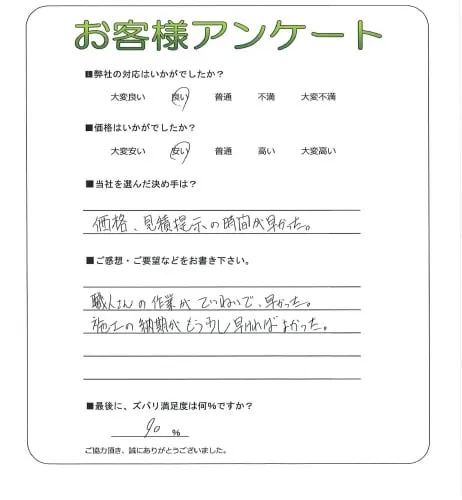 お客様アンケート
■弊社の対応はいかがでしたか？
大変良い 良い 普通 不満 大変不満
■価格はいかがでしたか？
大変安い 安い 普通 高い 大変高い
■当社を選んだ決め手は？
価格、見積提示の時間が早かった。
■ご感想・ご要望などをお書き下さい。
職人さんの作業がていねいで、早かった。
施工の納期がもう少し早ければよかった。
■最後に、ズバリ満足度は何%ですか？
90 %
ご協力頂き、誠にありがとうございました。